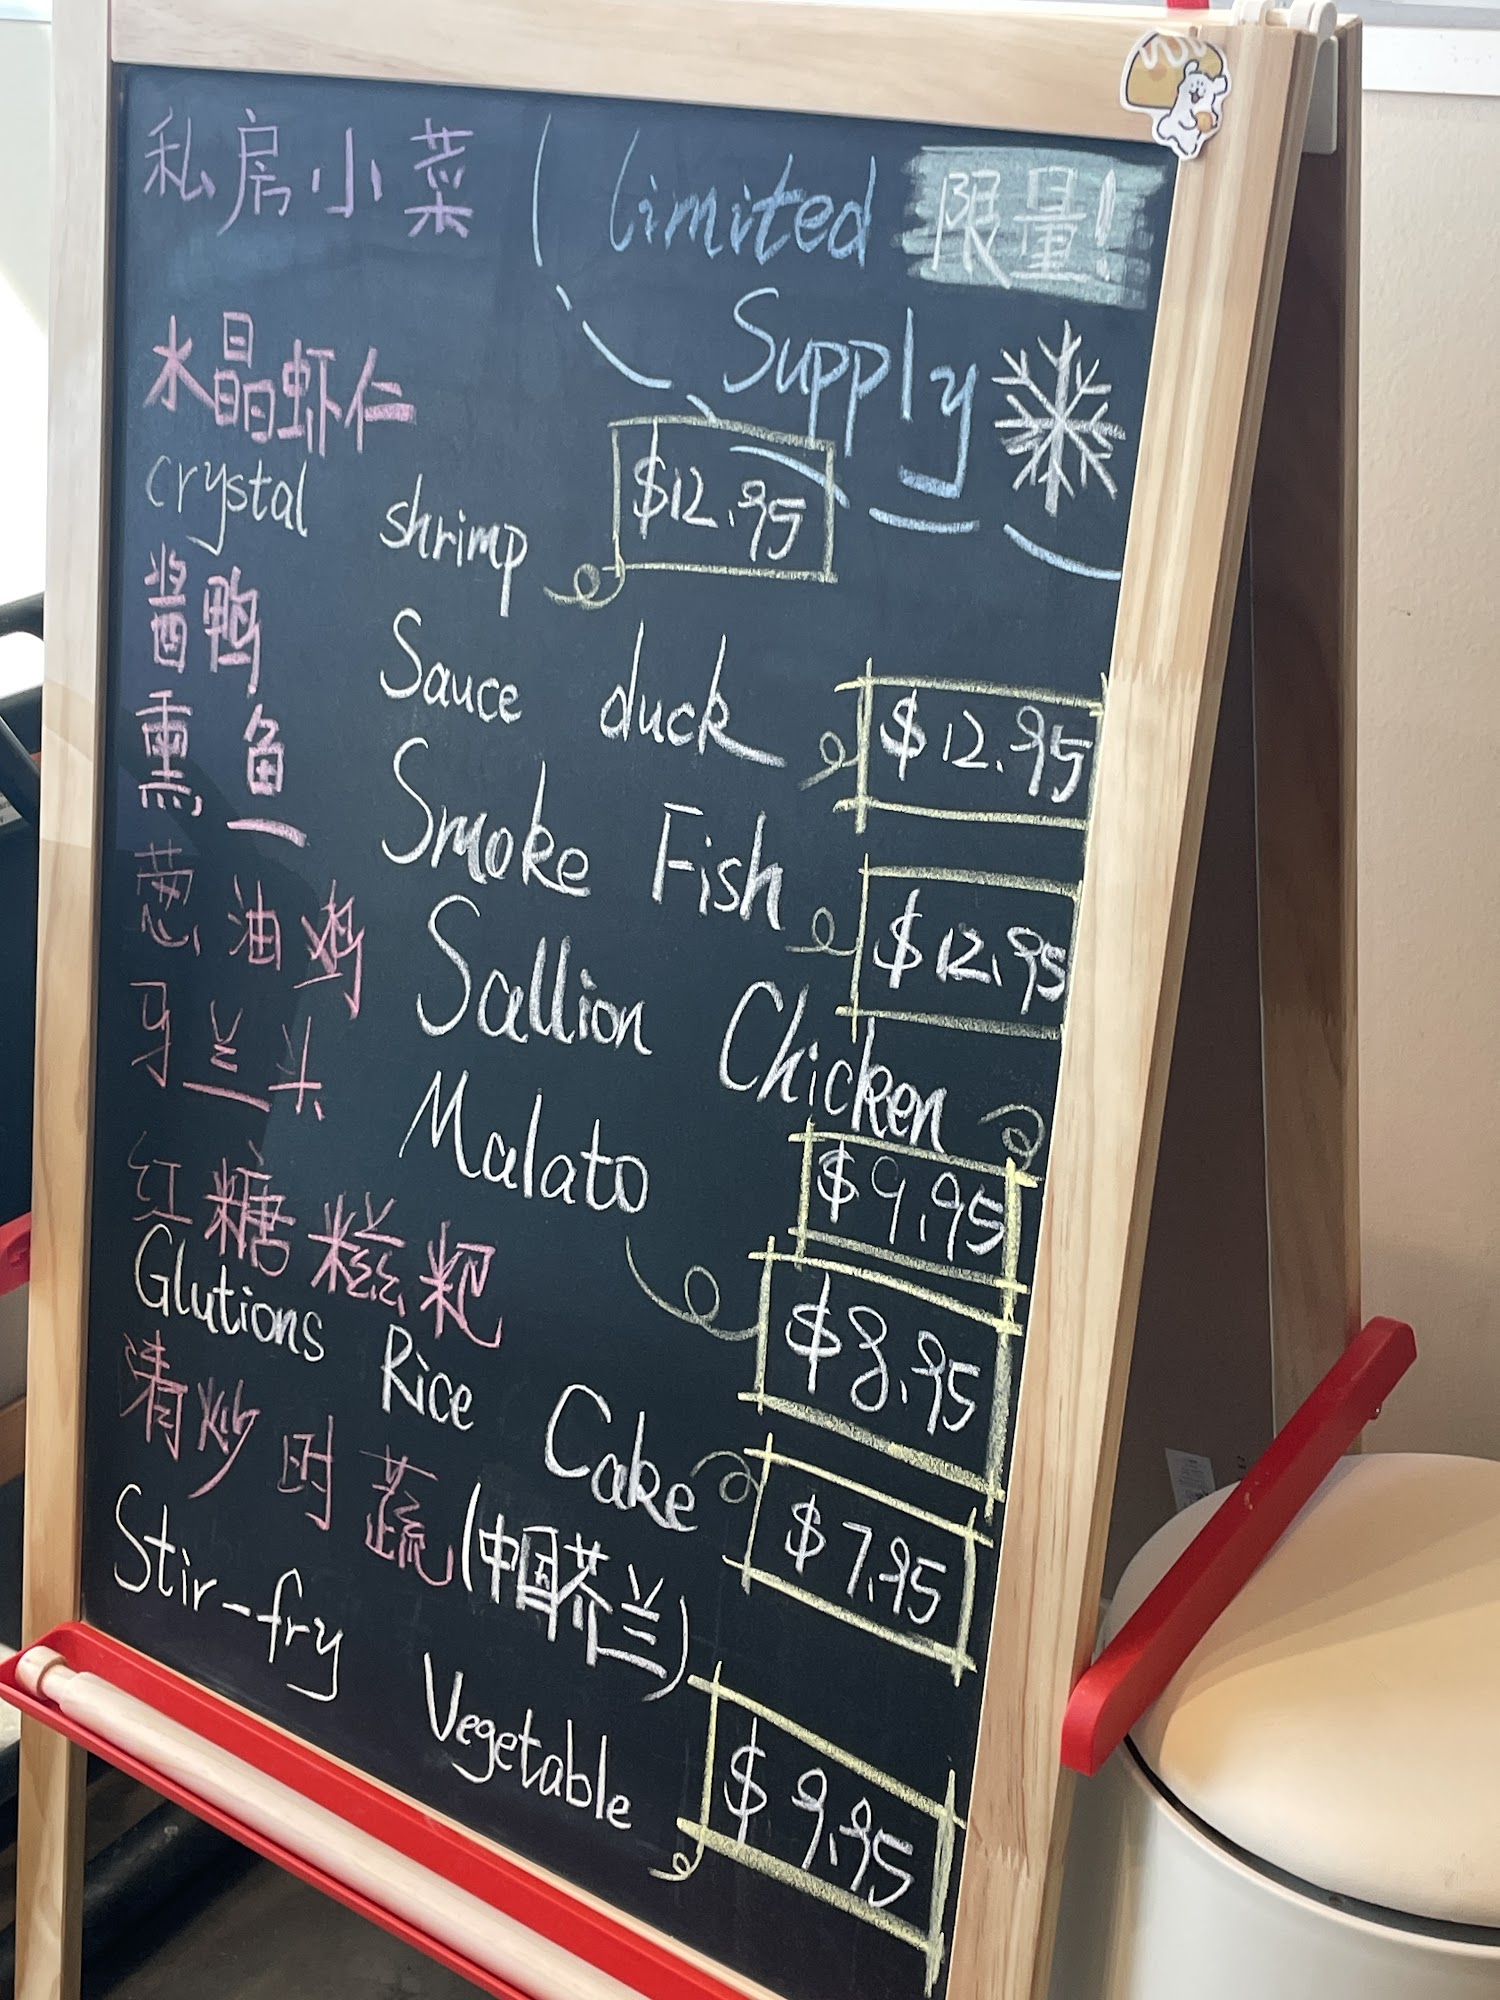 私房小菜 limited 限量!
Supply
水晶虾仁
crystal shrimp $12.95
酱鸭 Sauce duck $12.95
熏鱼 Smoke Fish $12.95
葱油鸡 Sallion Chicken $9.95
马兰头 Malato $8.95
红糖糍粑
Glutions Rice Cake $7.95
清炒时蔬(中国芥兰)
Stir-fry Vegetable $9.95